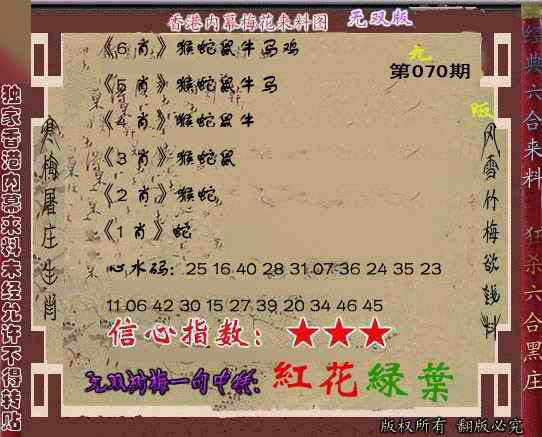 香港内幕梅花来料图 无双版
《6 肖》猴蛇鼠牛马鸡
第070期
《5 肖》猴蛇鼠牛马
《4 肖》猴蛇鼠牛
《3 肖》猴蛇鼠
《2 肖》猴蛇
《1 肖》蛇
心水码: 25 16 40 28 31 07 36 24 35 23
11 06 42 30 15 27 39 20 34 46 45
信心指数: ★★★
紅花綠葉
独家香港内幕来料未经允许不得转贴
寒梅屠庄生肖
风雪竹梅欲钱料
经典六合来料
狂杀六合黑庄
版权所有 翻版必究